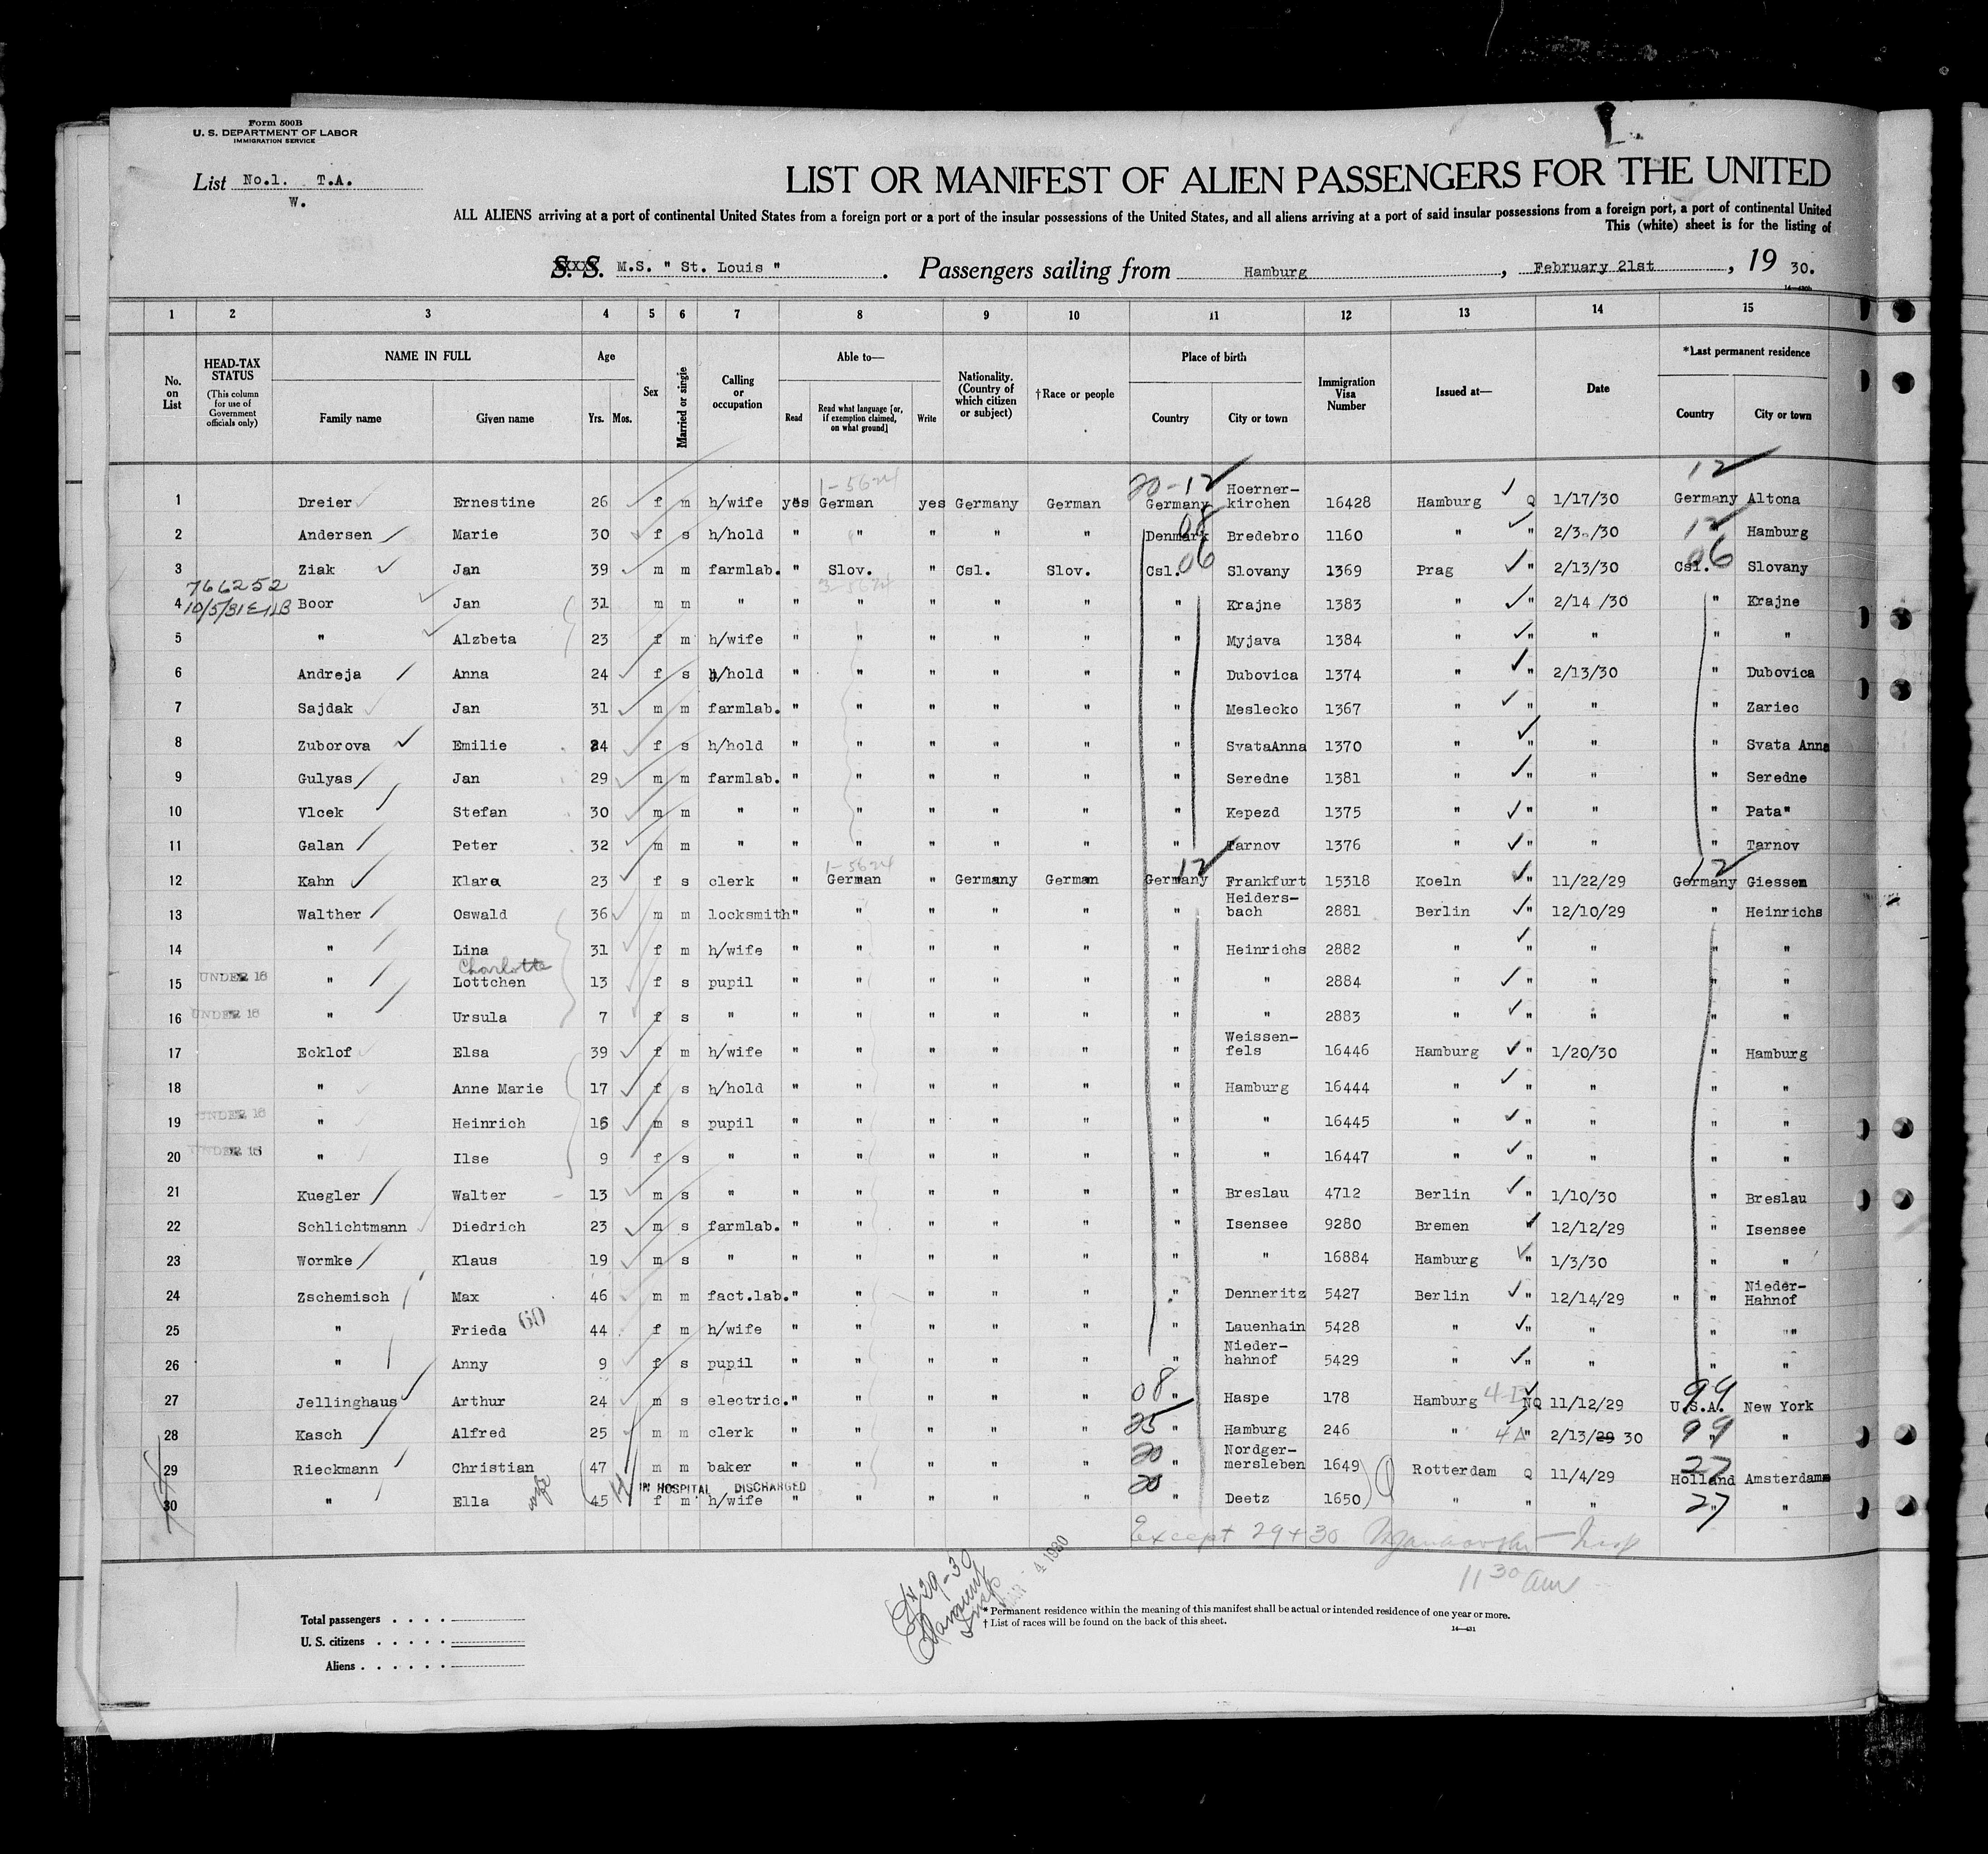 Form 500B
U. S. DEPARTMENT OF LABOR
IMMIGRATION SERVICE
List No.1. T.A.
W.
LIST OR MANIFEST OF ALIEN PASSENGERS FOR THE UNITED
ALL ALIENS arriving at a port of continental United States from a foreign port or a port of the insular possessions of the United States, and all aliens arriving at a port of said insular possessions from a foreign port, a port of continental United
This (white) sheet is for the listing of
S. S. M.S. " St. Louis " . Passengers sailing from Hamburg , February 21st , 19 30.
1 2 3 4 5 6 7 8 9 10 11 12 13 14 15
No. on List
HEAD-TAX STATUS (This column for use of Government officials only)
NAME IN FULL Family name Given name
Age Yrs. Mos.
Sex
Married or single
Calling or occupation
Able to— Read Read what language [or, if exemption claimed, on what ground] Write
Nationality. (Country of which citizen or subject)
†Race or people
Place of birth Country City or town
Immigration Visa Number
Issued at—
Date
*Last permanent residence Country City or town
20-12 12
1-5624
1 Dreier Ernestine 26 f m h/wife yes German yes Germany German Germany Hoerner-kirchen 16428 Hamburg Q 1/17/30 Germany Altona
2 Andersen Marie 30 f s h/hold " " " " " Denmark 08 Bredebro 1160 " " 2/3./30 12 Hamburg
3 Ziak Jan 39 m m farmlab. " Slov. " Csl. Slov. Csl. 06 Slovany 1369 Prag " 2/13/30 Csl. 06 Slovany
766252
3-5624
10/5/31
4 Boor Jan 31 m m " " " " " " " Krajne 1383 " " 2/14 /30 " Krajne
5 " Alzbeta 23 f m h/wife " " " " " " Myjava 1384 " " " " "
6 Andreja Anna 24 f s h/hold " " " " " " Dubovica 1374 " " 2/13/30 " Dubovica
7 Sajdak Jan 31 m m farmlab. " " " " " " Meslecko 1367 " " " " Zariec
8 Zuborova Emilie 24 f s h/hold " " " " " " SvataAnna 1370 " " " " Svata Anna
9 Gulyas Jan 29 m m farmlab. " " " " " " Seredne 1381 " " " " Seredne
10 Vlcek Stefan 30 m m " " " " " " " Kepezd 1375 " " " " Pata"
11 Galan Peter 32 m m " " " " " " " Tarnov 1376 " " " " Tarnov
1-5624 12 12
12 Kahn Klara 23 f s clerk " German " Germany German Germany Frankfurt 15318 Koeln " 11/22/29 Germany Giessen
13 Walther Oswald 36 m m locksmith " " " " " " Heiders-bach 2881 Berlin " 12/10/29 " Heinrichs
14 " Lina 31 f m h/wife " " " " " " Heinrichs 2882 " " " " "
Charlotte
15 UNDER 16 " Lottchen 13 f s pupil " " " " " " " 2884 " " " " "
16 UNDER 16 " Ursula 7 f s " " " " " " " " 2883 " " " " "
17 Ecklof Elsa 39 f m h/wife " " " " " " Weissen-fels 16446 Hamburg " 1/20/30 " Hamburg
18 " Anne Marie 17 f s h/hold " " " " " " Hamburg 16444 " " " " "
19 UNDER 16 " Heinrich 15 m s pupil " " " " " " " 16445 " " " " "
20 UNDER 16 " Ilse 9 f s " " " " " " " " 16447 " " " " "
21 Kuegler Walter 13 m s " " " " " " " Breslau 4712 Berlin " 1/10/30 " Breslau
22 Schlichtmann Diedrich 23 m s farmlab. " " " " " " Isensee 9280 Bremen " 12/12/29 " Isensee
23 Wormke Klaus 19 m s " " " " " " " " 16884 Hamburg " 1/3/30 " "
24 Zschemisch Max 46 m m fact.lab. " " " " " " Denneritz 5427 Berlin " 12/14/29 " " Nieder-Hahnof
25 " Frieda 44 f m h/wife " " " " " " Lauenhain 5428 " " " " ""
26 " Anny 9 f s pupil " " " " " " Nieder-hahnof 5429 " " " " "
27 Jellinghaus Arthur 24 m s electric. " " " " " 08 " Haspe 178 Hamburg NQ 11/12/29 99 U.S.A. New York
28 Kasch Alfred 25 m m clerk " " " " " 25 " Hamburg 246 " 4A " 2/13/29 30 99 " "
29 Rieckmann Christian 47 m m baker " " " " " 20 " Nordger-mersleben 1649 Rotterdam Q 11/4/29 27 Holland Amsterdam
IN HOSPITAL DISCHARGED
30 " Ella wife 45 f m h/wife " " " " " 20 " Deetz 1650 " " " 27 " "
Except 29+30
11 30 am
Ex 29-30
4 1930
Total passengers
U. S. citizens
Aliens
* Permanent residence within the meaning of this manifest shall be actual or intended residence of one year or more.
† List of races will be found on the back of this sheet.
14—431